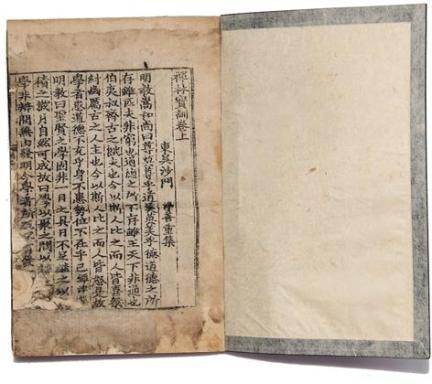 禪林寶訓卷上
東吳沙門 淨善重集
明教嵩和尚曰尊莫尊乎道美莫美乎德道德之所
存雖匹夫非窮也道德之所不存雖王天下非通也
伯夷叔齊古之餓夫也今以斯人比之而人皆喜桀
紂幽厲古之人主也今以斯人比之而人皆怒是故
學者患道德不充乎身不患勢位不在乎己
明教曰聖賢之學固非一日之具日不足繼之以
積之歲月自然可成故曰學以聚之問以
學非辨問無由發明今學者所